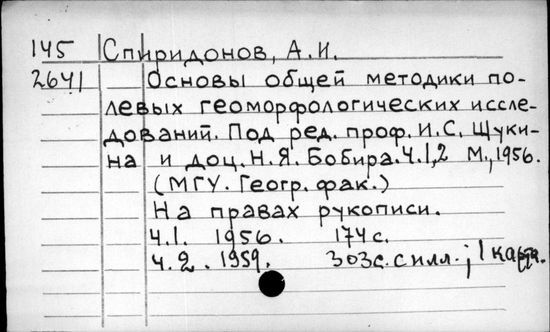 145 Спиридонов, А.И.
2641 Основы общей методики по-
левых геоморфологических иссле-
дований. Под ред. проф. И.С. Щуки-
на и доц. Н.Я. Бобира. Ч.1,2 М., 1956.
(МГУ. Геогр. фак.)
На правах рукописи.
Ч.1. 1956. 174 с.
Ч.2. 1959. 303 с. с илл.; 1 карта.